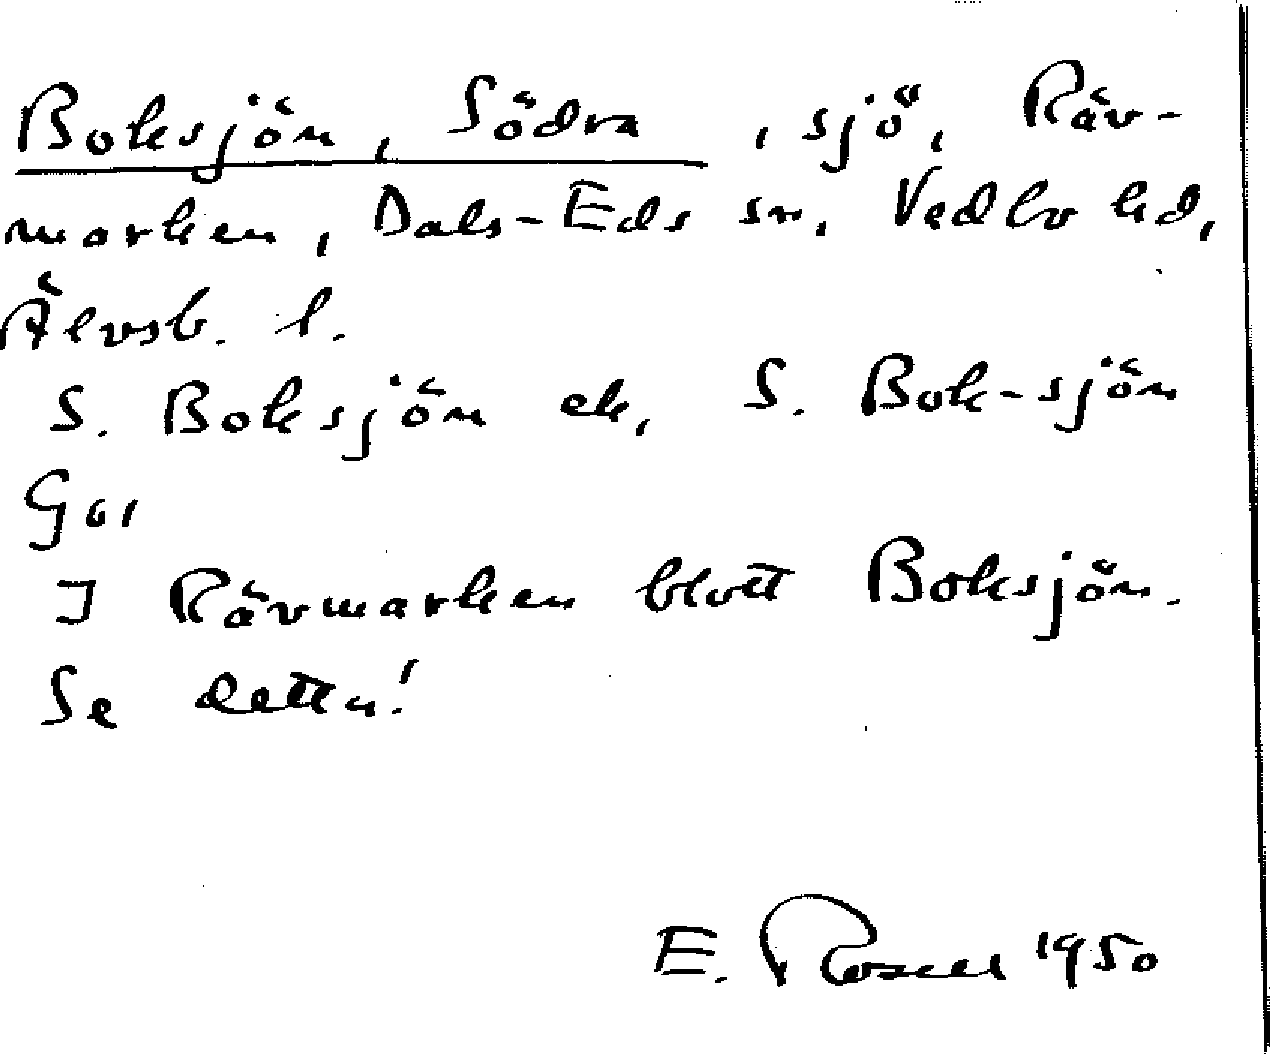 Boksjön, Södra, sjö, Räv-
marken, Dals-Eds sn, Vedbo hd,
Älvsb. l.
S. Boksjön ek, S. Bok-sjön
I Rävmarken blott Boksjön.
Se detta!
E. Rosell 1950